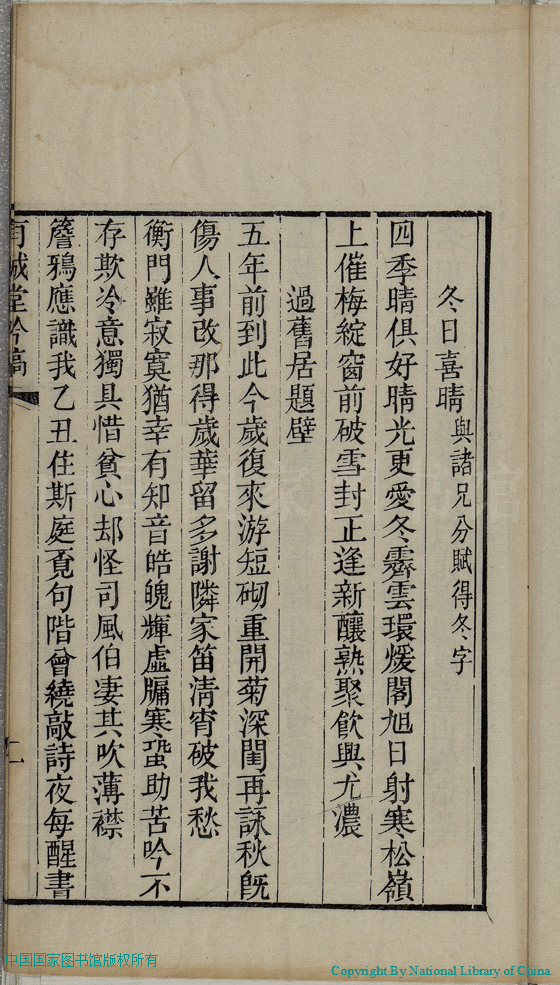 冬日喜晴與諸兄分賦得冬字
四季晴俱好晴光更愛冬霽雲環煖閣旭日射寒松嶺
上催梅綻窗前破雪封正逢新釀熟聚飲興尤濃
過舊居題壁
五年前到此今歲復來游短砌重開菊深閨再詠秋旣
傷人事改那得歲華留多謝隣家笛清宵破我愁
衡門雖寂寞猶幸有知音皓魄輝虛牖寒蛩助苦吟不
存欺冷意獨具惜貧心却怪司風伯凄其吹薄襟
簷鴉應識我乙丑住斯庭覔句階曾繞敲詩夜每醒書
有誠堂吟稿
二
中国国家图书馆版权所有
Copyright By National Library of China